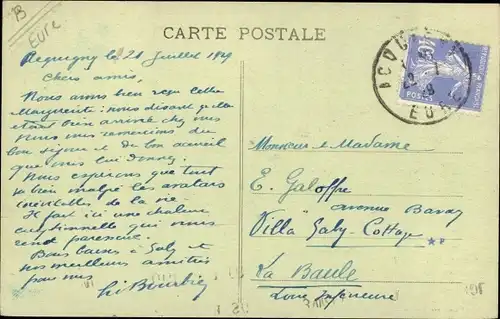 Eure
CARTE POSTALE
ACQUIGNY
EURE
POSTES
Acquigny le 21 Juillet 1929
Chers amis,
Nous avons bien reçu cette
Marguerite: nous disant qu'elle
était bien arrivée chez vous
Nous vous remercions du
bon séjour et du bon accueil
que vous lui donnez.
Nous espérons que tout
va bien malgré les avatars
inévitables de la vie.
Il fait ici une chaleur
qui vous
rend paresseux.
Bons baisers à Gaby et
nos meilleures amitiés
pour vous
Monsieur & Madame
E. Galoffre
avenue
Villa Gaby-Cottage
La Baule
Loire Inférieure